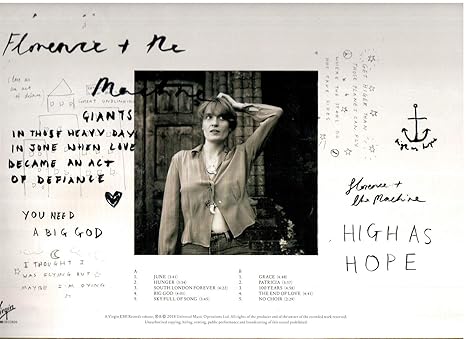 Florence + the
Machine
GIANTS
IN THOSE HEAVY DAYS
IN JUNE WHEN LOVE
BECAME AN ACT
OF DEFIANCE
YOU NEED
A BIG GOD
I THOUGHT I
WAS FLYING BUT
MAYBE I'M DYING
Virgin
RECORDS
florence +
the Machine
HIGH AS
HOPE
A
1. JUNE (3:41)
2. HUNGER (3:34)
3. SOUTH LONDON FOREVER (4:22)
4. BIG GOD (4:01)
5. SKY FULL OF SONG (3:46)
B
1. GRACE (4:48)
2. PATRICIA (3:37)
3. 100 YEARS (4:58)
4. THE END OF LOVE (4:41)
5. NO CHOIR (2:29)
A Virgin EMI Records release, ℗ & © 2018 Universal Music Operations Ltd. All rights of the producer and of the owner of the recorded work reserved.
Unauthorised copying, hiring, renting, public performance and broadcasting of this record prohibited.